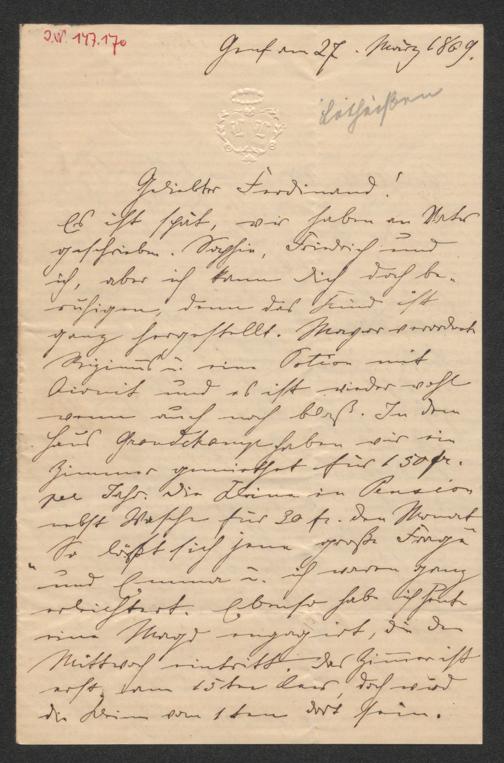 I.N. 147.170
Genf am 27. März 1869.
Lotheißen
Geliebter Ferdinand!
Es ist spät, wir haben an Vater
geschrieben. Sophie, Friedrich und
ich, aber ich kann Dich doch be-
ruhigen, denn das Kind ist
ganz hergestellt. Mayor verordnete
u. eine Potion mit
und es ist wieder wohl
wenn auch noch blaß. In dem
Haus Grandchamp haben wir ein
Zimmer gemiethet für 150 fr.
per Jahr. Die Kleine in Pension
nebst Wäsche für 30 fr. den Monat
So löst sich jene große Frage
und Emma u. ich waren ganz
erleichtert. Ebenso habe ich heute
eine Magd engagirt, die den
Mittwoch eintritt. Das Zimmer ist
erst am 15ten doch wird
die Kleine vom 1ten dort sein.